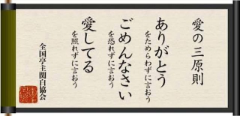 愛の三原則
ありがとう
をためらわずに言おう
ごめんなさい
を恐れずに言おう
愛してる
を照れずに言おう
全国亭主関白協会